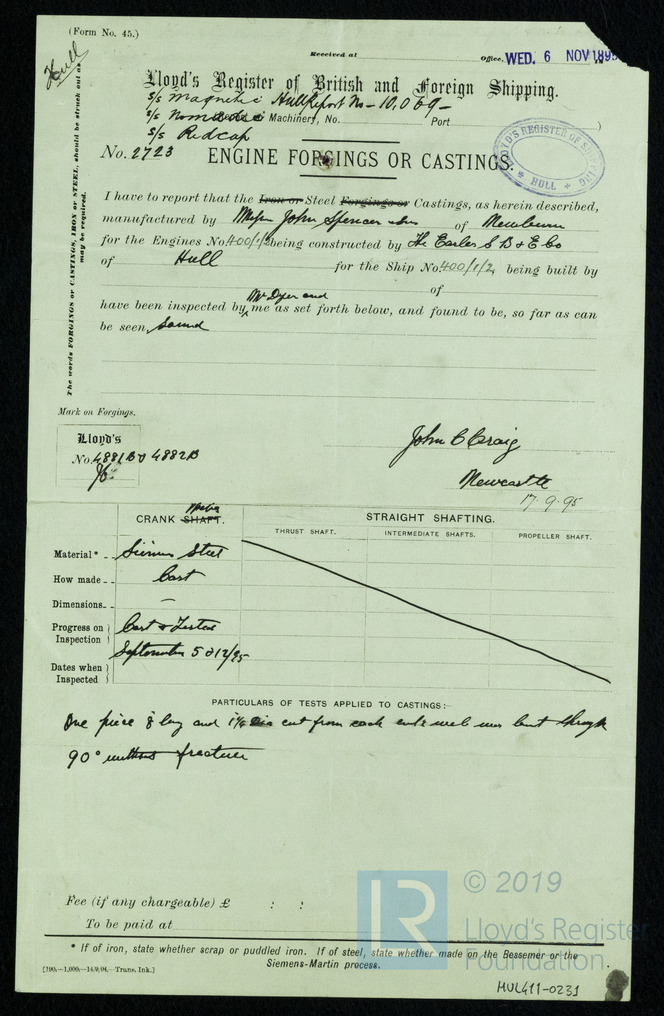 (Form No. 45.)
Hull
Received at
Office, WED. 6 NOV 1895
Lloyd's Register of British and Foreign Shipping.
s/s Magnetic Hull Report No - 10,069 -
s/s Machinery, No. Port )
s/s Redcap
LLOYD'S REGISTER OF SHIPPING
HULL
No. 2723
ENGINE FORGINGS OR CASTINGS.
The words FORGINGS or CASTINGS, IRON or STEEL, should be struck out as may be required.
I have to report that the Iron or Steel Forgings or Castings, as herein described,
manufactured by Messrs John Spencer & Sons of Newburn
for the Engines No 400/1/2 being constructed by The Earles S B & E Co
of Hull for the Ship No 400/1/2, being built by
of
Mr Dyer and
have been inspected by me as set forth below, and found to be, so far as can
be seen, Sound
Mark on Forgings.
Lloyd's
No. 4881B & 4882B
John C Craig
Newcastle
17.9.95
CRANK SHAFT. Webs
STRAIGHT SHAFTING.
THRUST SHAFT. INTERMEDIATE SHAFTS. PROPELLER SHAFT.
Material* Siemens Steel
How made Cast
Dimensions –
Progress on Inspection Cast & Tested
Dates when Inspected September 5 & 12/95
PARTICULARS OF TESTS APPLIED TO CASTINGS:—
One piece 8 long and 1⅛ dia cut from each web was bent through
90° without fracture
Fee (if any chargeable) £ : :
To be paid at
* If of iron, state whether scrap or puddled iron. If of steel, state whether made on the Bessemer or the
Siemens-Martin process.
[190,—1,000,—14/9/94,—Trans. Ink.]
LR
© 2019
Lloyd's Register
Foundation
HUL411-0231